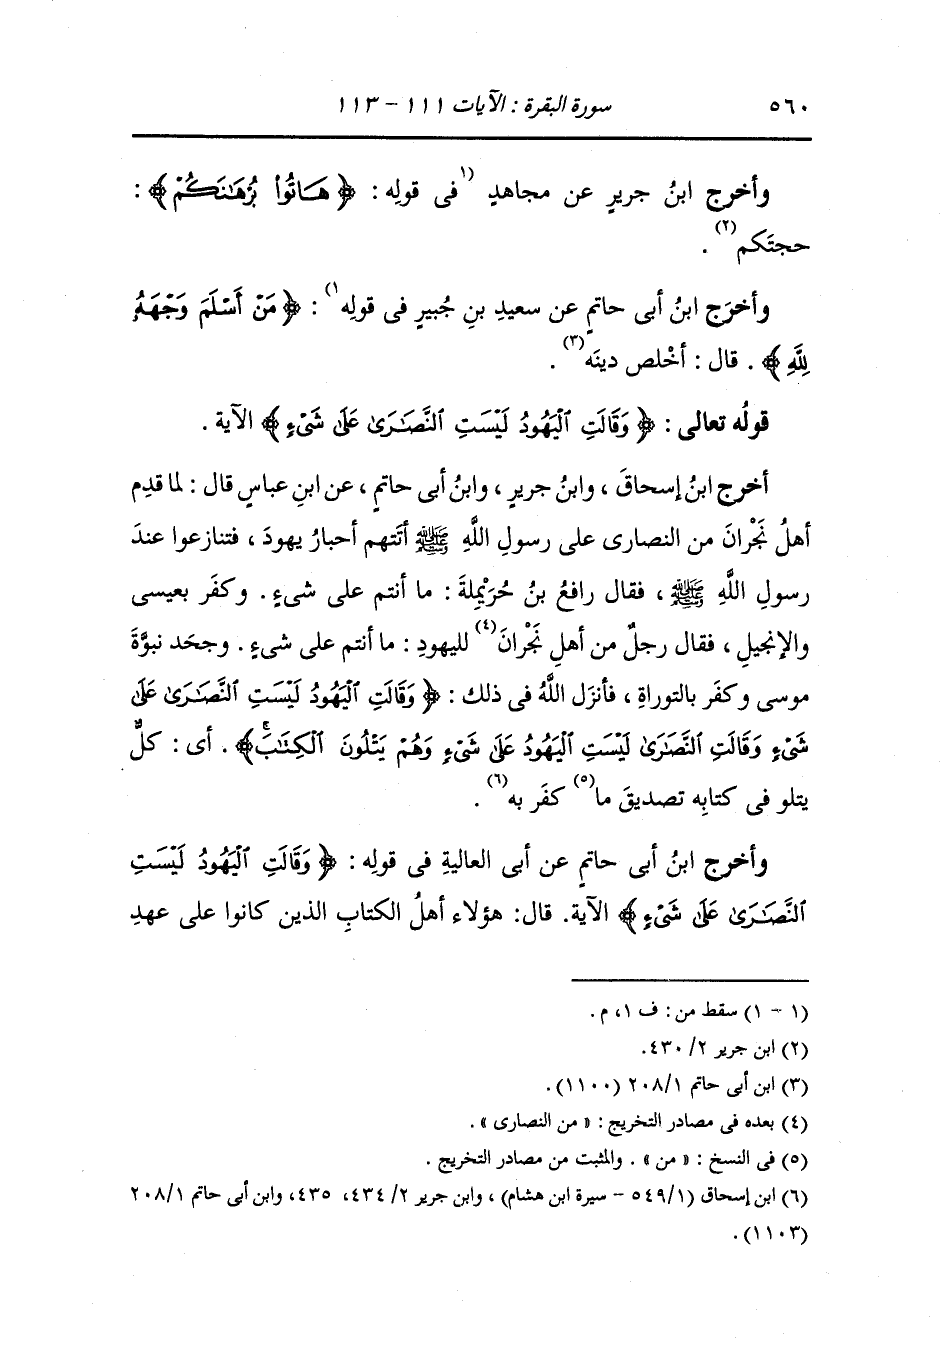 ٥٦٠ سورة البقرة : الآيات ١١١ - ١١٣
وأخرج ابنُ جريرٍ عن مجاهدٍ (١فى قولِه : ﴿ هَاتُوا۟ بُرْهَـٰنَكُمْ ﴾ :
حجتَكم(٢) .
وأخرَج ابنُ أبى حاتمٍ عن سعيدِ بنِ جُبيرٍ فى قولِه١) : ﴿ مَنْ أَسْلَمَ وَجْهَهُۥ
لِلَّهِ ﴾ . قال : أخْلص دينَه(٣) .
قولُه تعالى : ﴿ وَقَالَتِ ٱلْيَهُودُ لَيْسَتِ ٱلنَّصَـٰرَىٰ عَلَىٰ شَىْءٍ ﴾ الآية .
أخرج ابنُ إسحاقَ ، وابنُ جريرٍ ، وابنُ أبى حاتمٍ ، عن ابنِ عباسٍ قال : لما قدِم
أهلُ نَجْرانَ من النصارى على رسولِ اللَّهِ ﷺ أتَتهم أحبارُ يهودَ ، فتنازعوا عندَ
رسولِ اللَّهِ ﷺ ، فقال رافعُ بنُ حُرَيْمِلةَ : ما أنتم على شىءٍ . وكفَر بعيسى
والإنجيلِ ، فقال رجلٌ من أهلِ نَجْرانَ(٤) لليهودِ : ما أنتم على شىءٍ . وجحَد نبوَّةَ
موسى وكفَر بالتوراةِ ، فأنزَل اللَّهُ فى ذلك : ﴿ وَقَالَتِ ٱلْيَهُودُ لَيْسَتِ ٱلنَّصَـٰرَىٰ عَلَىٰ
شَىْءٍ وَقَالَتِ ٱلنَّصَـٰرَىٰ لَيْسَتِ ٱلْيَهُودُ عَلَىٰ شَىْءٍ وَهُمْ يَتْلُونَ ٱلْكِتَـٰبَۗ ﴾ . أى : كلٌّ
يتلو فى كتابِه تصديقَ ما(٥) كفَر به(٦) .
وأخرج ابنُ أبى حاتمٍ عن أبى العاليةِ فى قولِه : ﴿ وَقَالَتِ ٱلْيَهُودُ لَيْسَتِ
ٱلنَّصَـٰرَىٰ عَلَىٰ شَىْءٍ ﴾ الآية. قال: هؤلاء أهلُ الكتابِ الذين كانوا على عهدِ
(١ - ١) سقط من : ف ١، م .
(٢) ابن جرير ٢/ ٤٣٠.
(٣) ابن أبى حاتم ٢٠٨/١ (١١٠٠).
(٤) بعده فى مصادر التخريج : « من النصارى » .
(٥) فى النسخ : « من » . والمثبت من مصادر التخريج .
(٦) ابن إسحاق (٥٤٩/١ - سيرة ابن هشام) ، وابن جرير ٢/ ٤٣٤، ٤٣٥، وابن أبى حاتم ٢٠٨/١
(١١٠٣).